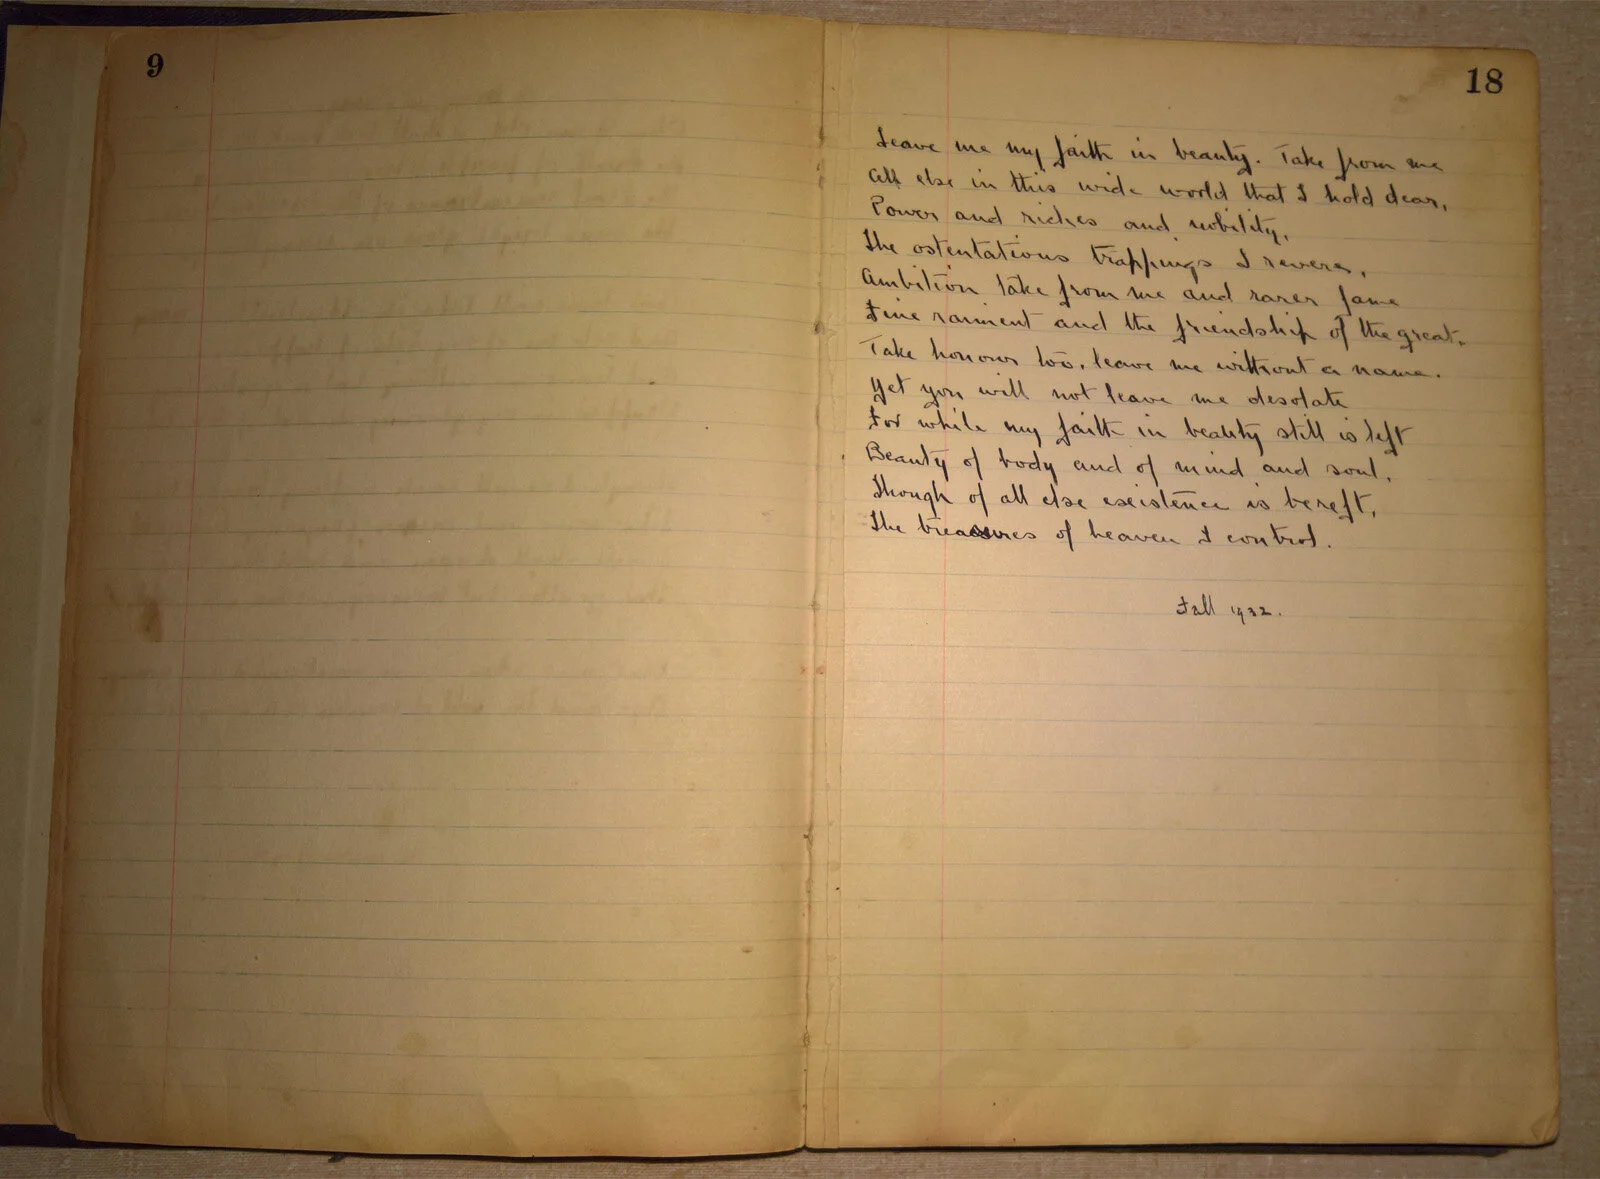 9
18
Leave me my faith in beauty. Take from me
All else in this wide world that I hold dear,
Power and riches and nobility,
The ostentatious trappings I revere,
Ambition take from me and rarer fame
Fine raiment and the friendship of the great.
Take honours too, leave me without a name.
Yet you will not leave me desolate
For while my faith in beauty still is left
Beauty of body and of mind and soul,
Though of all else existence is bereft,
The treasures of heaven I control.
Fall 1932.